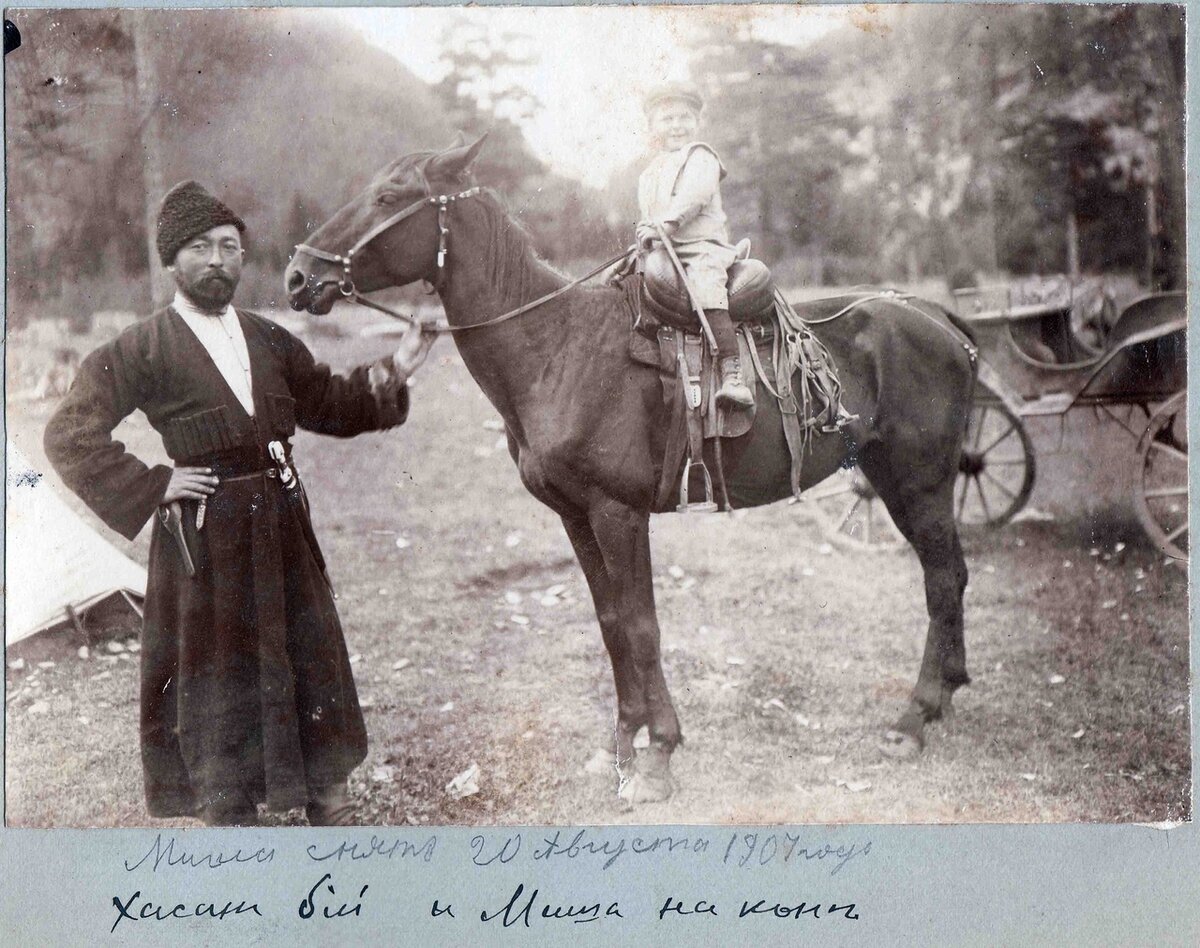 Миша снятъ 20 Августа 1907 году
Хасан бiй и Миша на конѣ